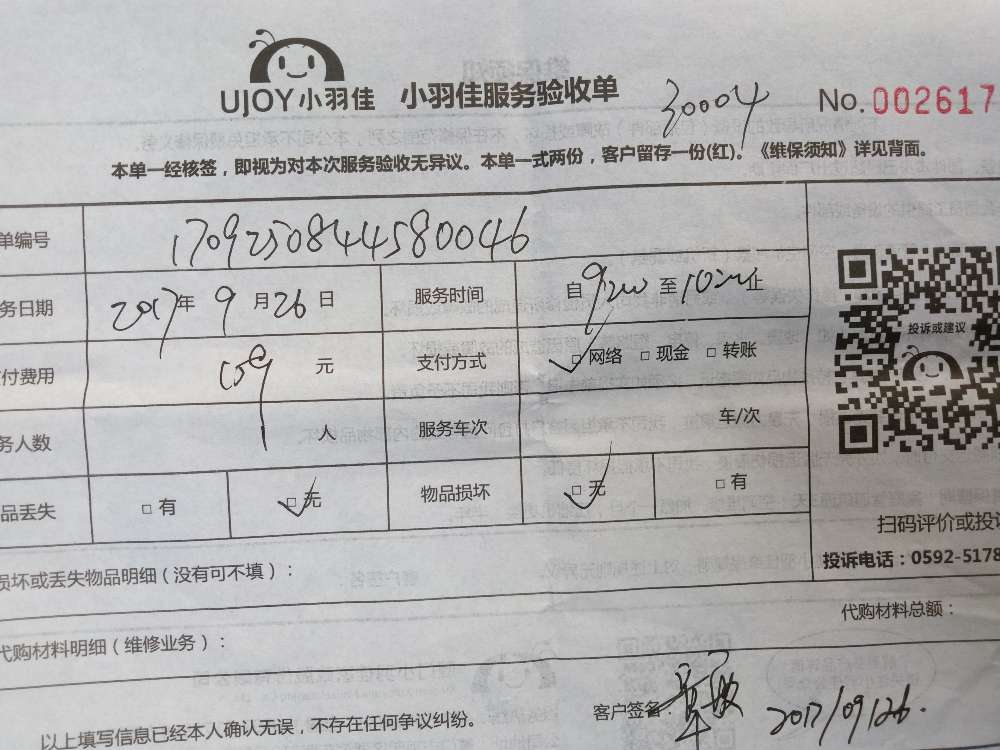 UJOY小羽佳 小羽佳服务验收单 30004 No.002617
本单一经核签，即视为对本次服务验收无异议。本单一式两份，客户留存一份(红)。《维保须知》详见背面。
单编号 1709250844580046
务日期 2017年 9 月 26 日 服务时间 自 9:00 至 10:00 止
付费用 159 元 支付方式 □网络 □现金 □转账
务人数 1 人 服务车次 车/次
品丢失 □有 □无 物品损坏 □无 □有
投诉或建议
扫码评价或投诉
投诉电话：0592-5178
损坏或丢失物品明细（没有可不填）：
代购材料明细（维修业务）： 代购材料总额：
以上填写信息已经本人确认无误，不存在任何争议纠纷。 客户签名： 2017/09/26.